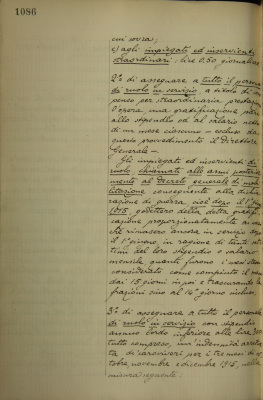 1086
cui sopra;
c) agli impiegati ed inservienti
straordinari: lire 0.50 giornaliere
2° di assegnare a tutto il personale
di ruolo in servizio, a titolo di com
penso per straordinaria prestazione
d'opera, una gratificazione pari
allo stipendio od al salario netto
di un mese ciascuno – escluso da
questo provvedimento il Direttore
Generale –
Gli impiegati ed inservienti di
ruolo, chiamati alle armi posterior
mente al Decreto generale di mobi
litazione conseguente alla dichia
razione di guerra, cioè dopo il 1°
1915, godettero della detta gratifi
cazione proporzionatamente ai mesi
che rimasero ancora in servizio dopo
il 1° giugno in ragione di tanti
del loro stipendio o salario
mensile quanti furono i mesi
considerato come compiuto il mese
dai 15 giorni in poi e trascurando le
frazioni sino al 14° giorno incluso.
3° di assegnare a tutto il personale
di ruolo in servizio con stipendio
annuo lordo inferiore alle lire
tutto compreso, un'indennità
da per i tre mesi di ot
tobre, novembre e dicembre 1915, nella
misura seguente: